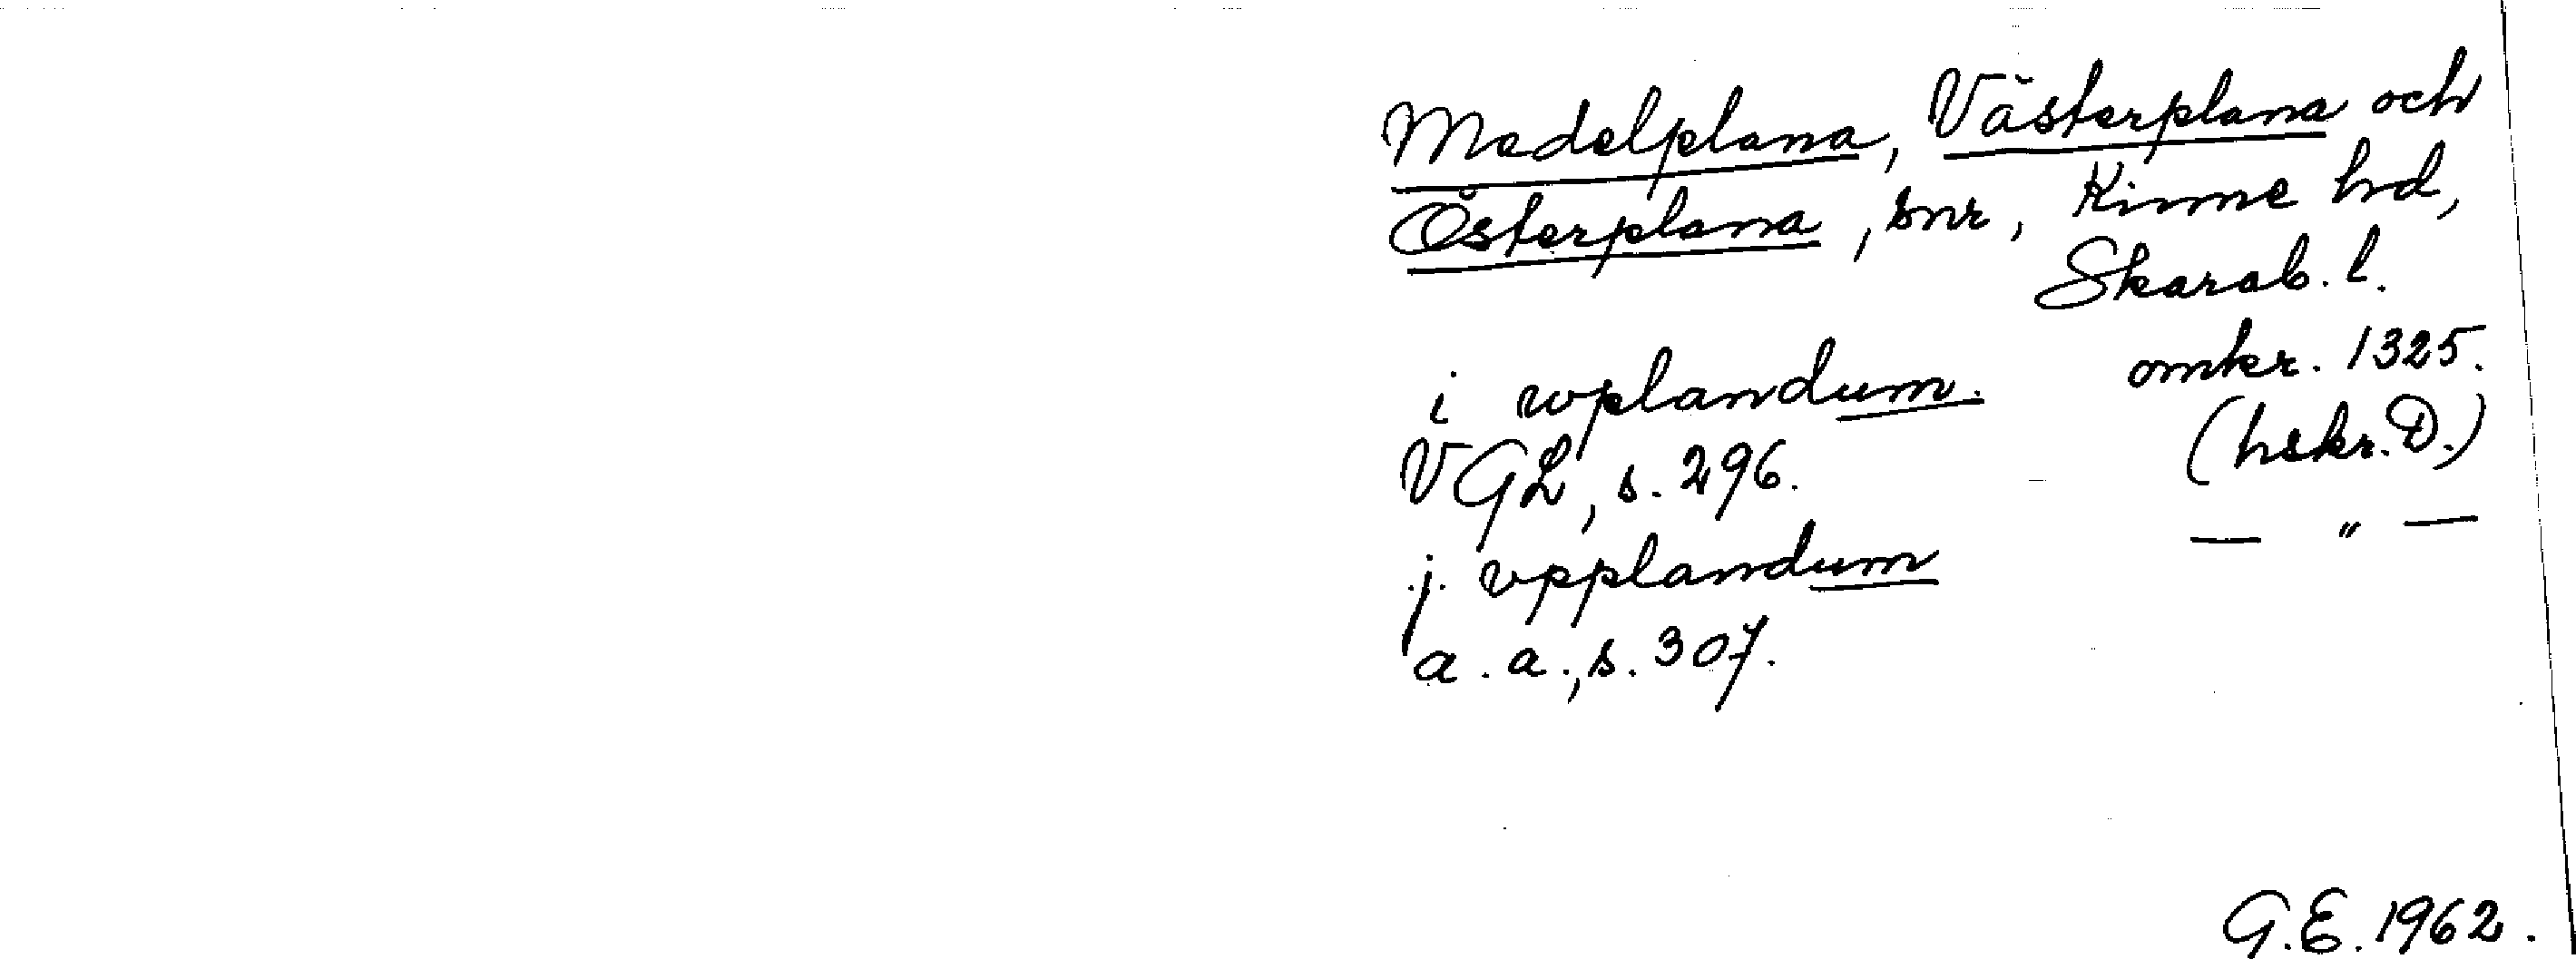 Medelplana, Västerplana och
Österplana, snr, Kinne hd,
Skarab. l.
i wplandum. omkr. 1325.
VGL, s. 296. (hskr. D.)
j. vpplandum — " —
a. a., s. 307.
G.E. 1962.